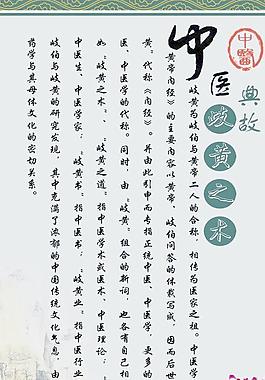 中醫
中医
典故
岐黄之术
岐黄为岐伯与黄帝二人的合称，相传为医家之祖。中医学
黄帝内经》的主要内容以黄帝、岐伯问答的体裁写成，因而后世
黄。代称《内经》。并由此引申而专指正统中医、中医学，更多的
医、中医学的代称。同时，由“岐黄”组合的新词，也各有自己相
如“岐黄之术”、“岐黄之道”指中医学术或医术、中医理论；
中医生、中医学家；“岐黄书”指中医书；“岐黄业”指中医行业
岐伯与岐黄的研究发现，其中充满了浓郁的中国传统文化气息，由
药学与其母体文化的密切关系。